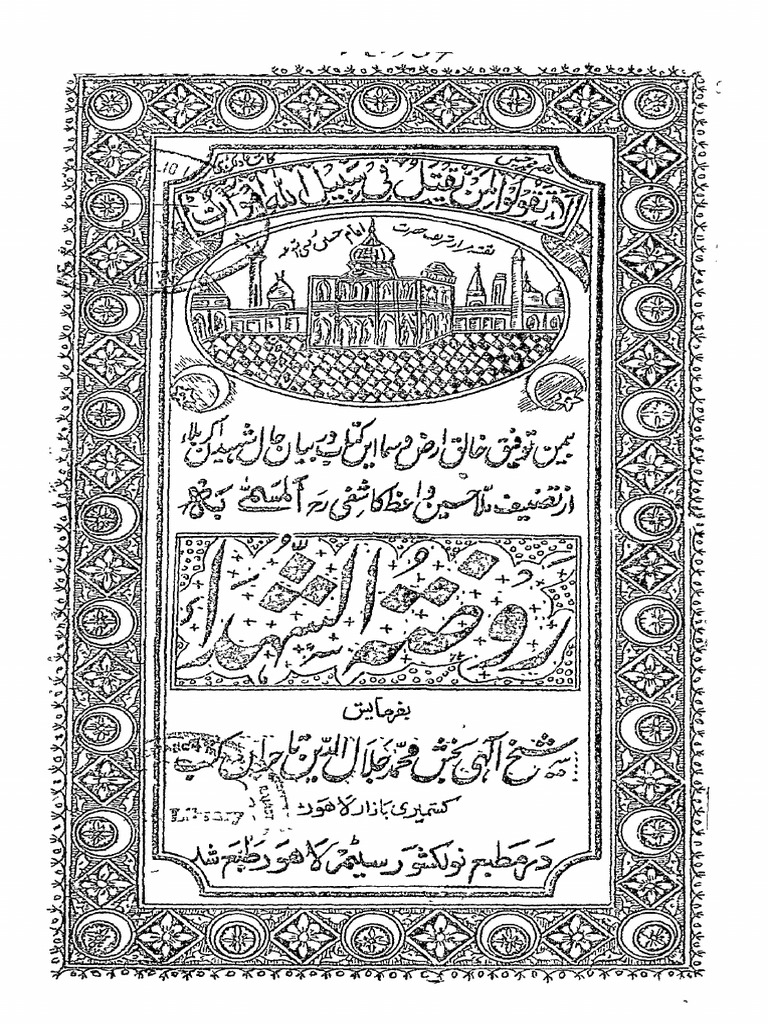 لا تقولوا لمن یقتل فی سبیل اللہ اموات
نقشہ مزار شریف حضرت امام حسین
بیمن توفیق خالق ارض و سما این کتاب در بیان حال شہیدان کربلاء
از تصنیف ملا حسین واعظ کاشفی رح المسمیٰ بہ
روضۃ الشہداء
بفرمایش
شیخ الٰہی بخش محمد جلال الدین تاجران کتب
کشمیری بازار لاھور
Library
در مطبع نولکشور سٹیم لاھور طبع شد